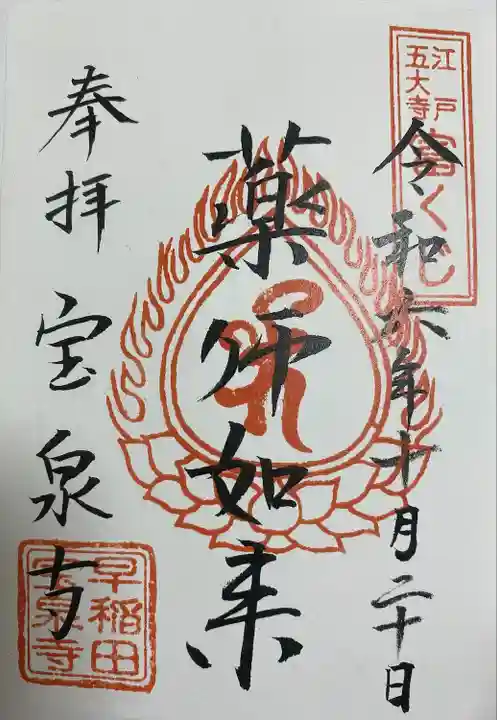 江戸
五大寺
富くじ
令和六年十月二十日
薬师如来
奉拝 宝泉寺
早稲田
宝泉寺